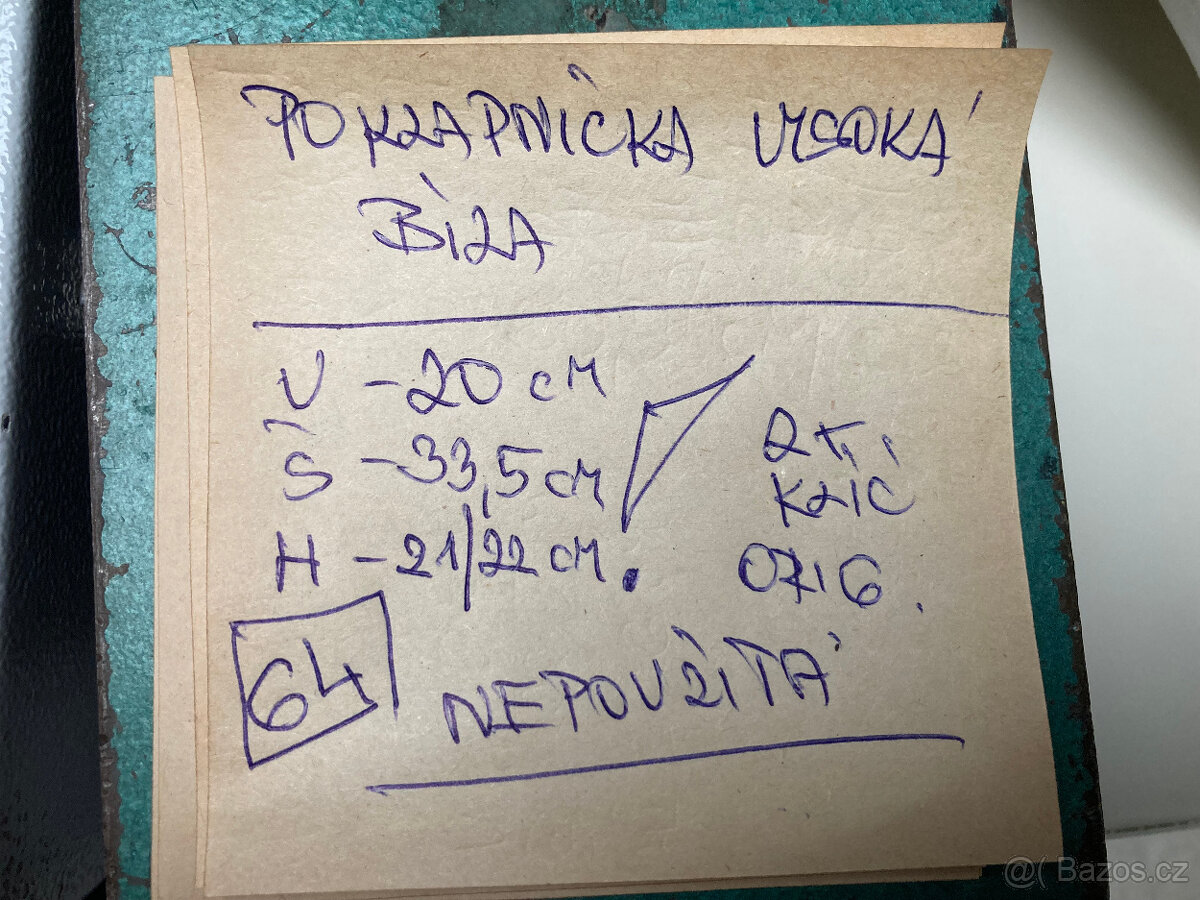 POKLADNIČKA VYSOKÁ
BÍLA
V - 20 cm
Š - 33,5 cm
H - 21/22 cm.
2x
KLÍČ
ORIG.
64
NEPOUŽITÁ
@( Bazos.cz